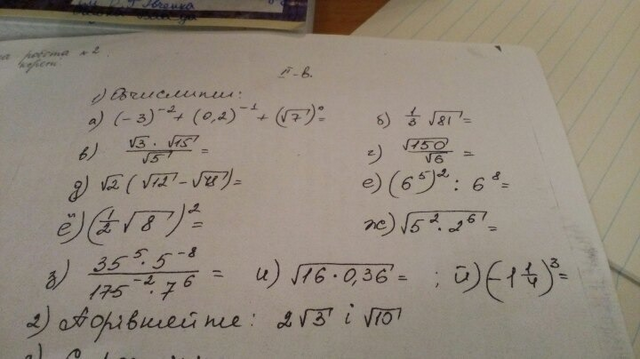 а робота № 2
ІІ - в.
1) Обчислити:
а) (-3)⁻² + (0,2)⁻¹ + (√7)⁰ =
б) 1/3 √81 =
в) √3 · √15 / √5 =
г) √150 / √6 =
д) √2 (√12 - √18) =
е) (6⁵)² : 6⁸ =
ё) (1/2 √8)² =
ж) √(5² · 2⁶) =
з) 35⁵ · 5⁻⁸ / 175⁻² · 7⁶ =
и) √(16 · 0,36) = ; й) (-1 1/4)³ =
2) Порівняйте: 2√3 і √10